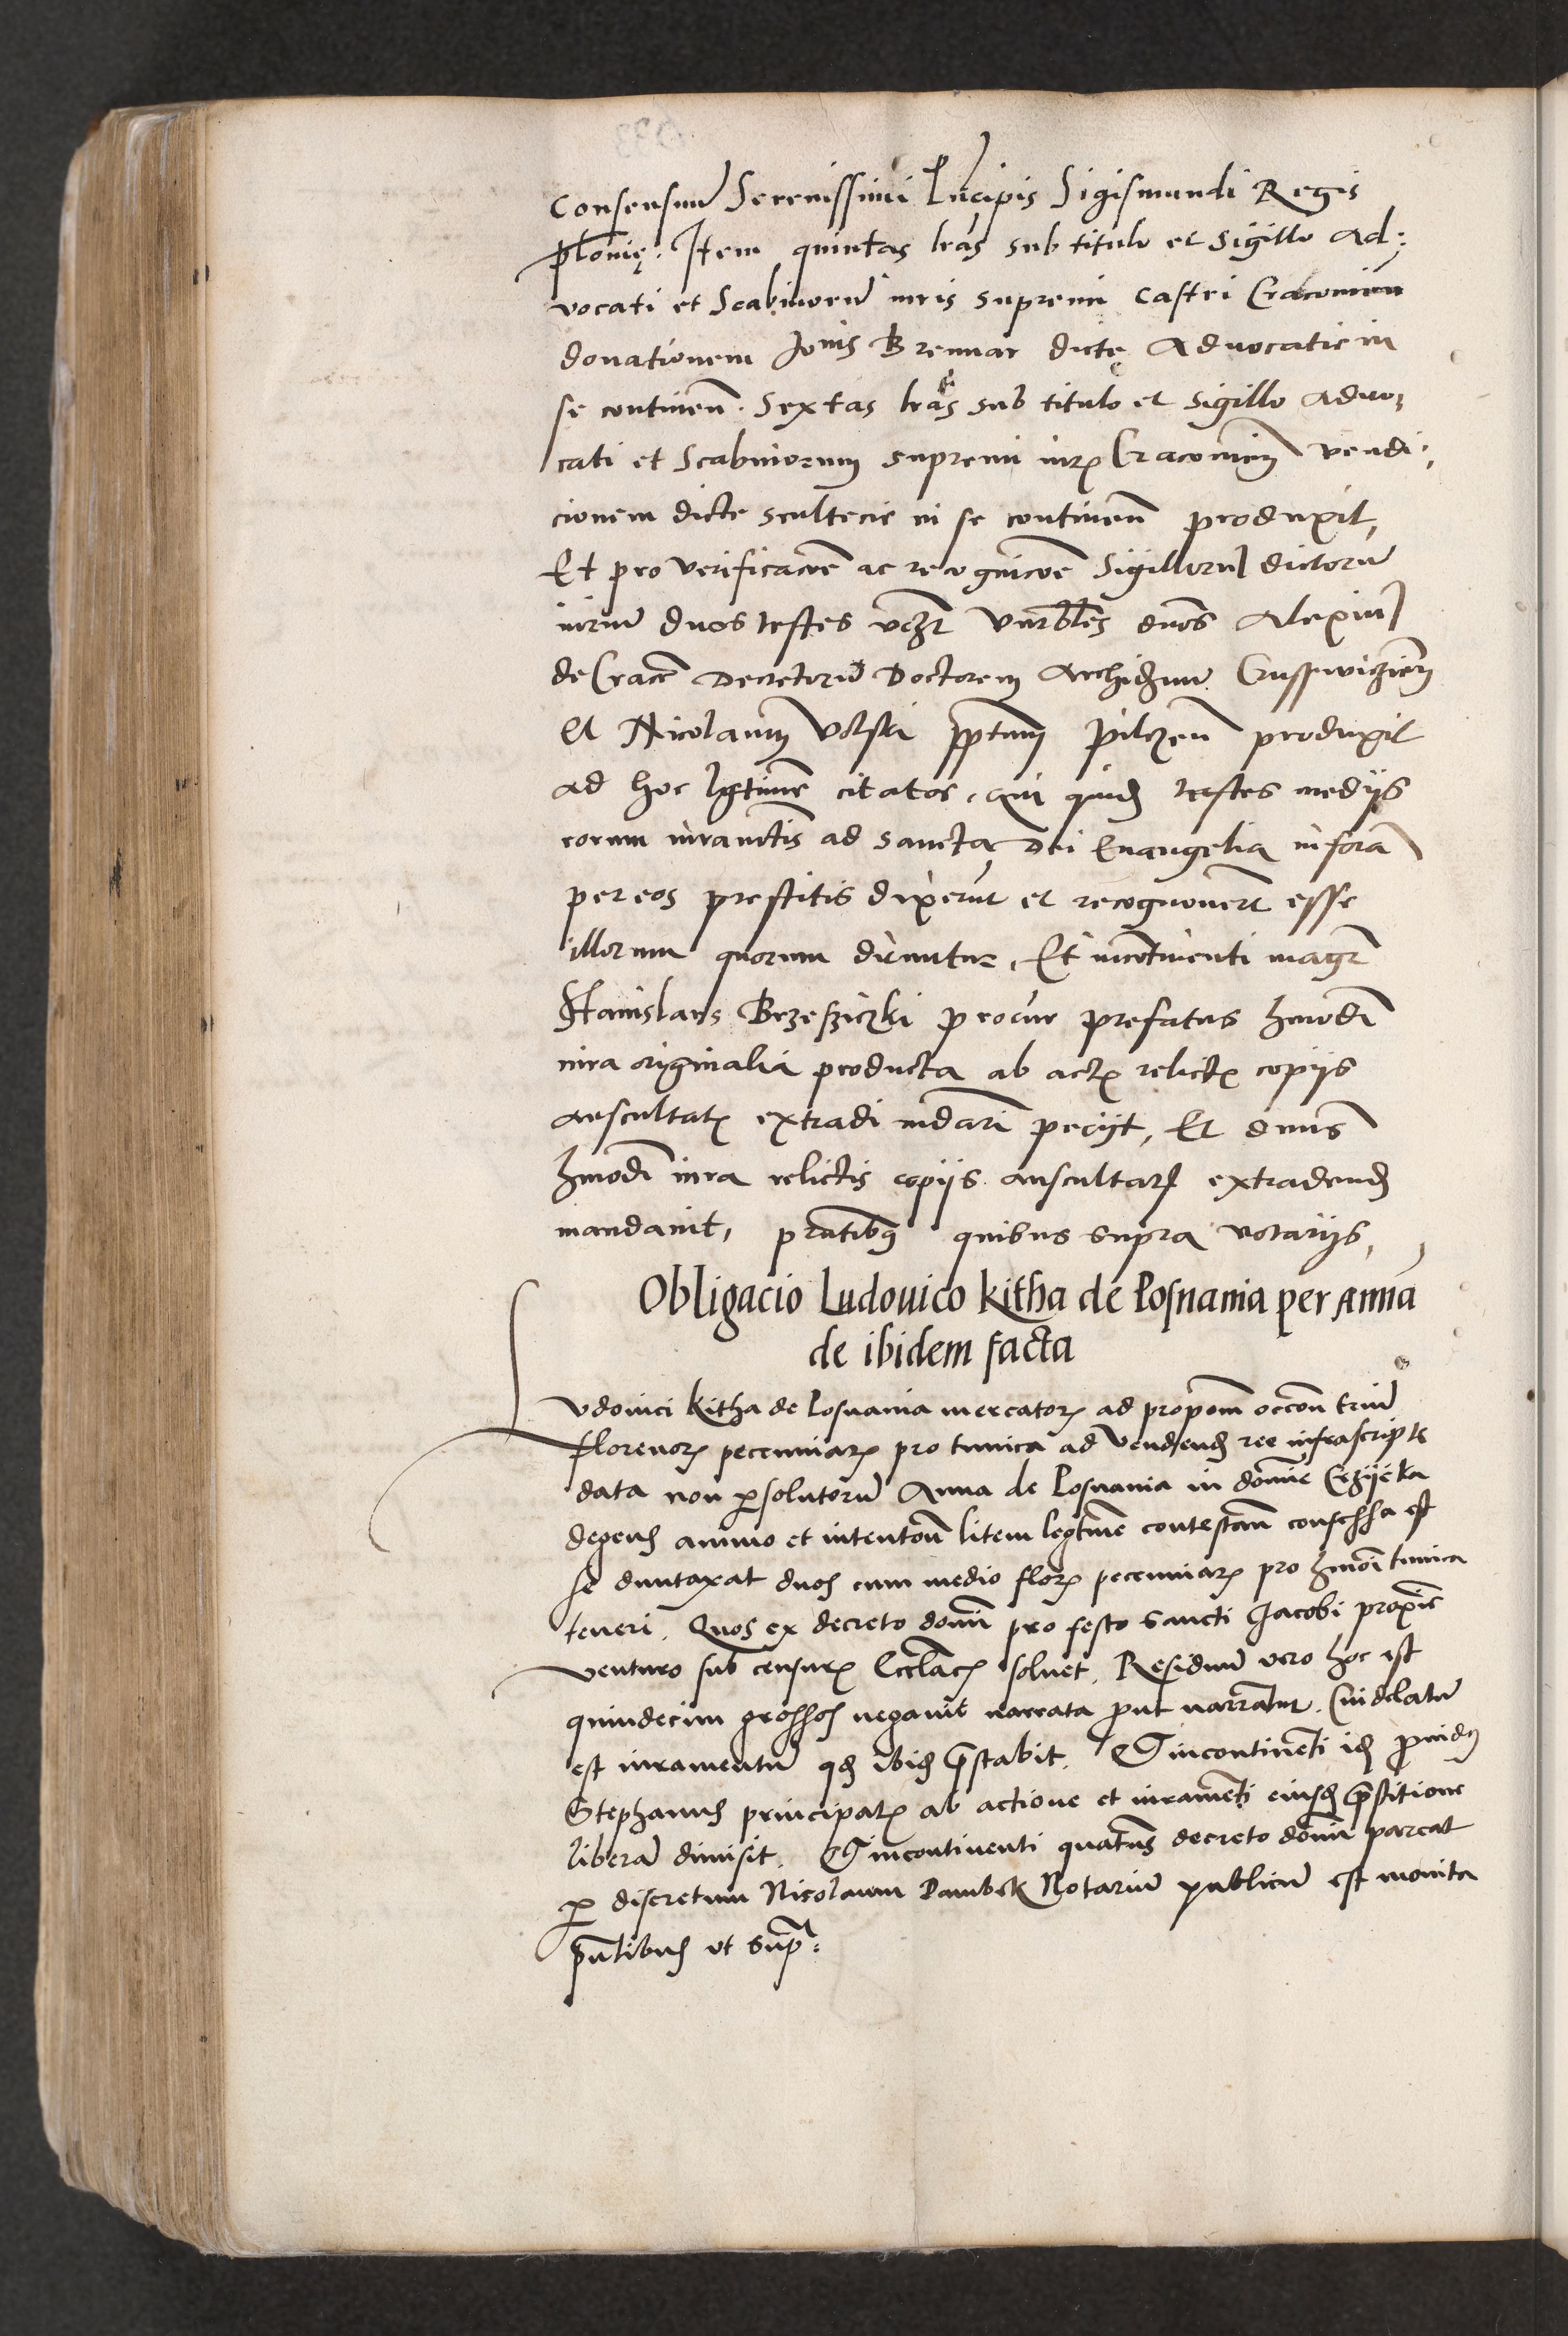 Consensum Serenissimi Principis Sigismundi Regis
Polonię. Item quintas lras sub titulo et sigillo Ad:
vocati et Scabinorum iuris supremi Castri Cracovien
donationem Jonis Brennar dictę Advocatie in
se continen. Sextas lras sub titulo et sigillo Advo,
cati et Scabinorum supremi iuris Cracovien vendi,
cionem dicte scultecie in se continen produxit,
Et pro verificacõe ac recognicõe Sigillorum dictorum
iurium duos testes vczt venrbles dnos Alexium
de Cracov Decretorum Doctorem Archidnum
Et Nicolaum Volski pptum Pilczen produxit
ad hoc lgtime citatos. Qui quidem testes medijs
eorum iuramentis ad sancta Dei Evangelia in forã
per eos prestitis dixerunt et recognoverunt esse
illorum quorum dicuntur. Et incontinenti magr
Stanislaus Brzeszicki procur prefatus hmodi
iura originalia producta ab actis relictis copijs
auscultatis extradi mdari petijt, Et dnus
hmodi iura relictis copijs auscultatis extradend
mandavit, pntibus quibus supra notarijs,
Obligacio Ludouico Kitha de Posnania per Annã
de ibidem facta
Ludovici Kitha de Posnania mercatoris ad propom occon trium
florenorum pecuniarum pro tunica ad vendend ree infrascripte
data non persolutorum Anna de Posnania in domo
degens animo et intentom litem legtime contestan confessa est
se duntaxat duos cum medio flor pecuniarum pro hmoi tunica
teneri. Quos ex decreto domini pro festo Sancti Jacobi proxie
venturo sub censuris Ecclacis solvet. Residuum vero hoc est
quindecim grossos negavit narrata prout narrantur. Cui delatum
est iuramentum quod ibidem prestabit. Et incontinenti idem providus
Stephanus principalis ab actione et iuramenti eiusdem prestitione
liberam dimisit. Et incontinenti quatenus decreto domini pareat
per discretum Nicolaum Dambek Notarium publicum est monita
pntibus ut supra.